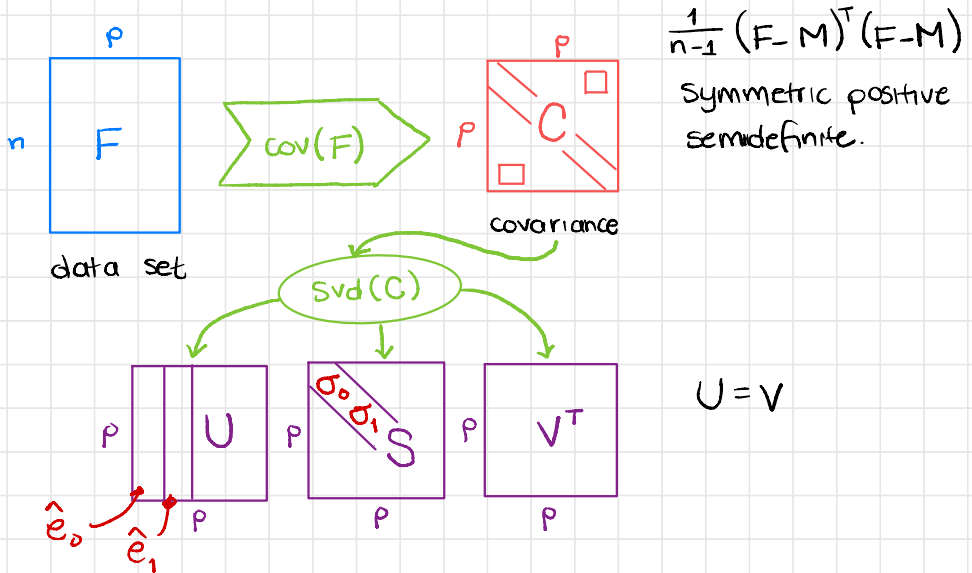 p
n
F
data set
cov(F)
p
p
C
covariance
1/(n-1) (F-M)ᵀ(F-M)
Symmetric positive
semidefinite.
svd(C)
p
U
p
ê₀
ê₁
p
σ₀
σ₁
S
p
p
Vᵀ
p
U = V